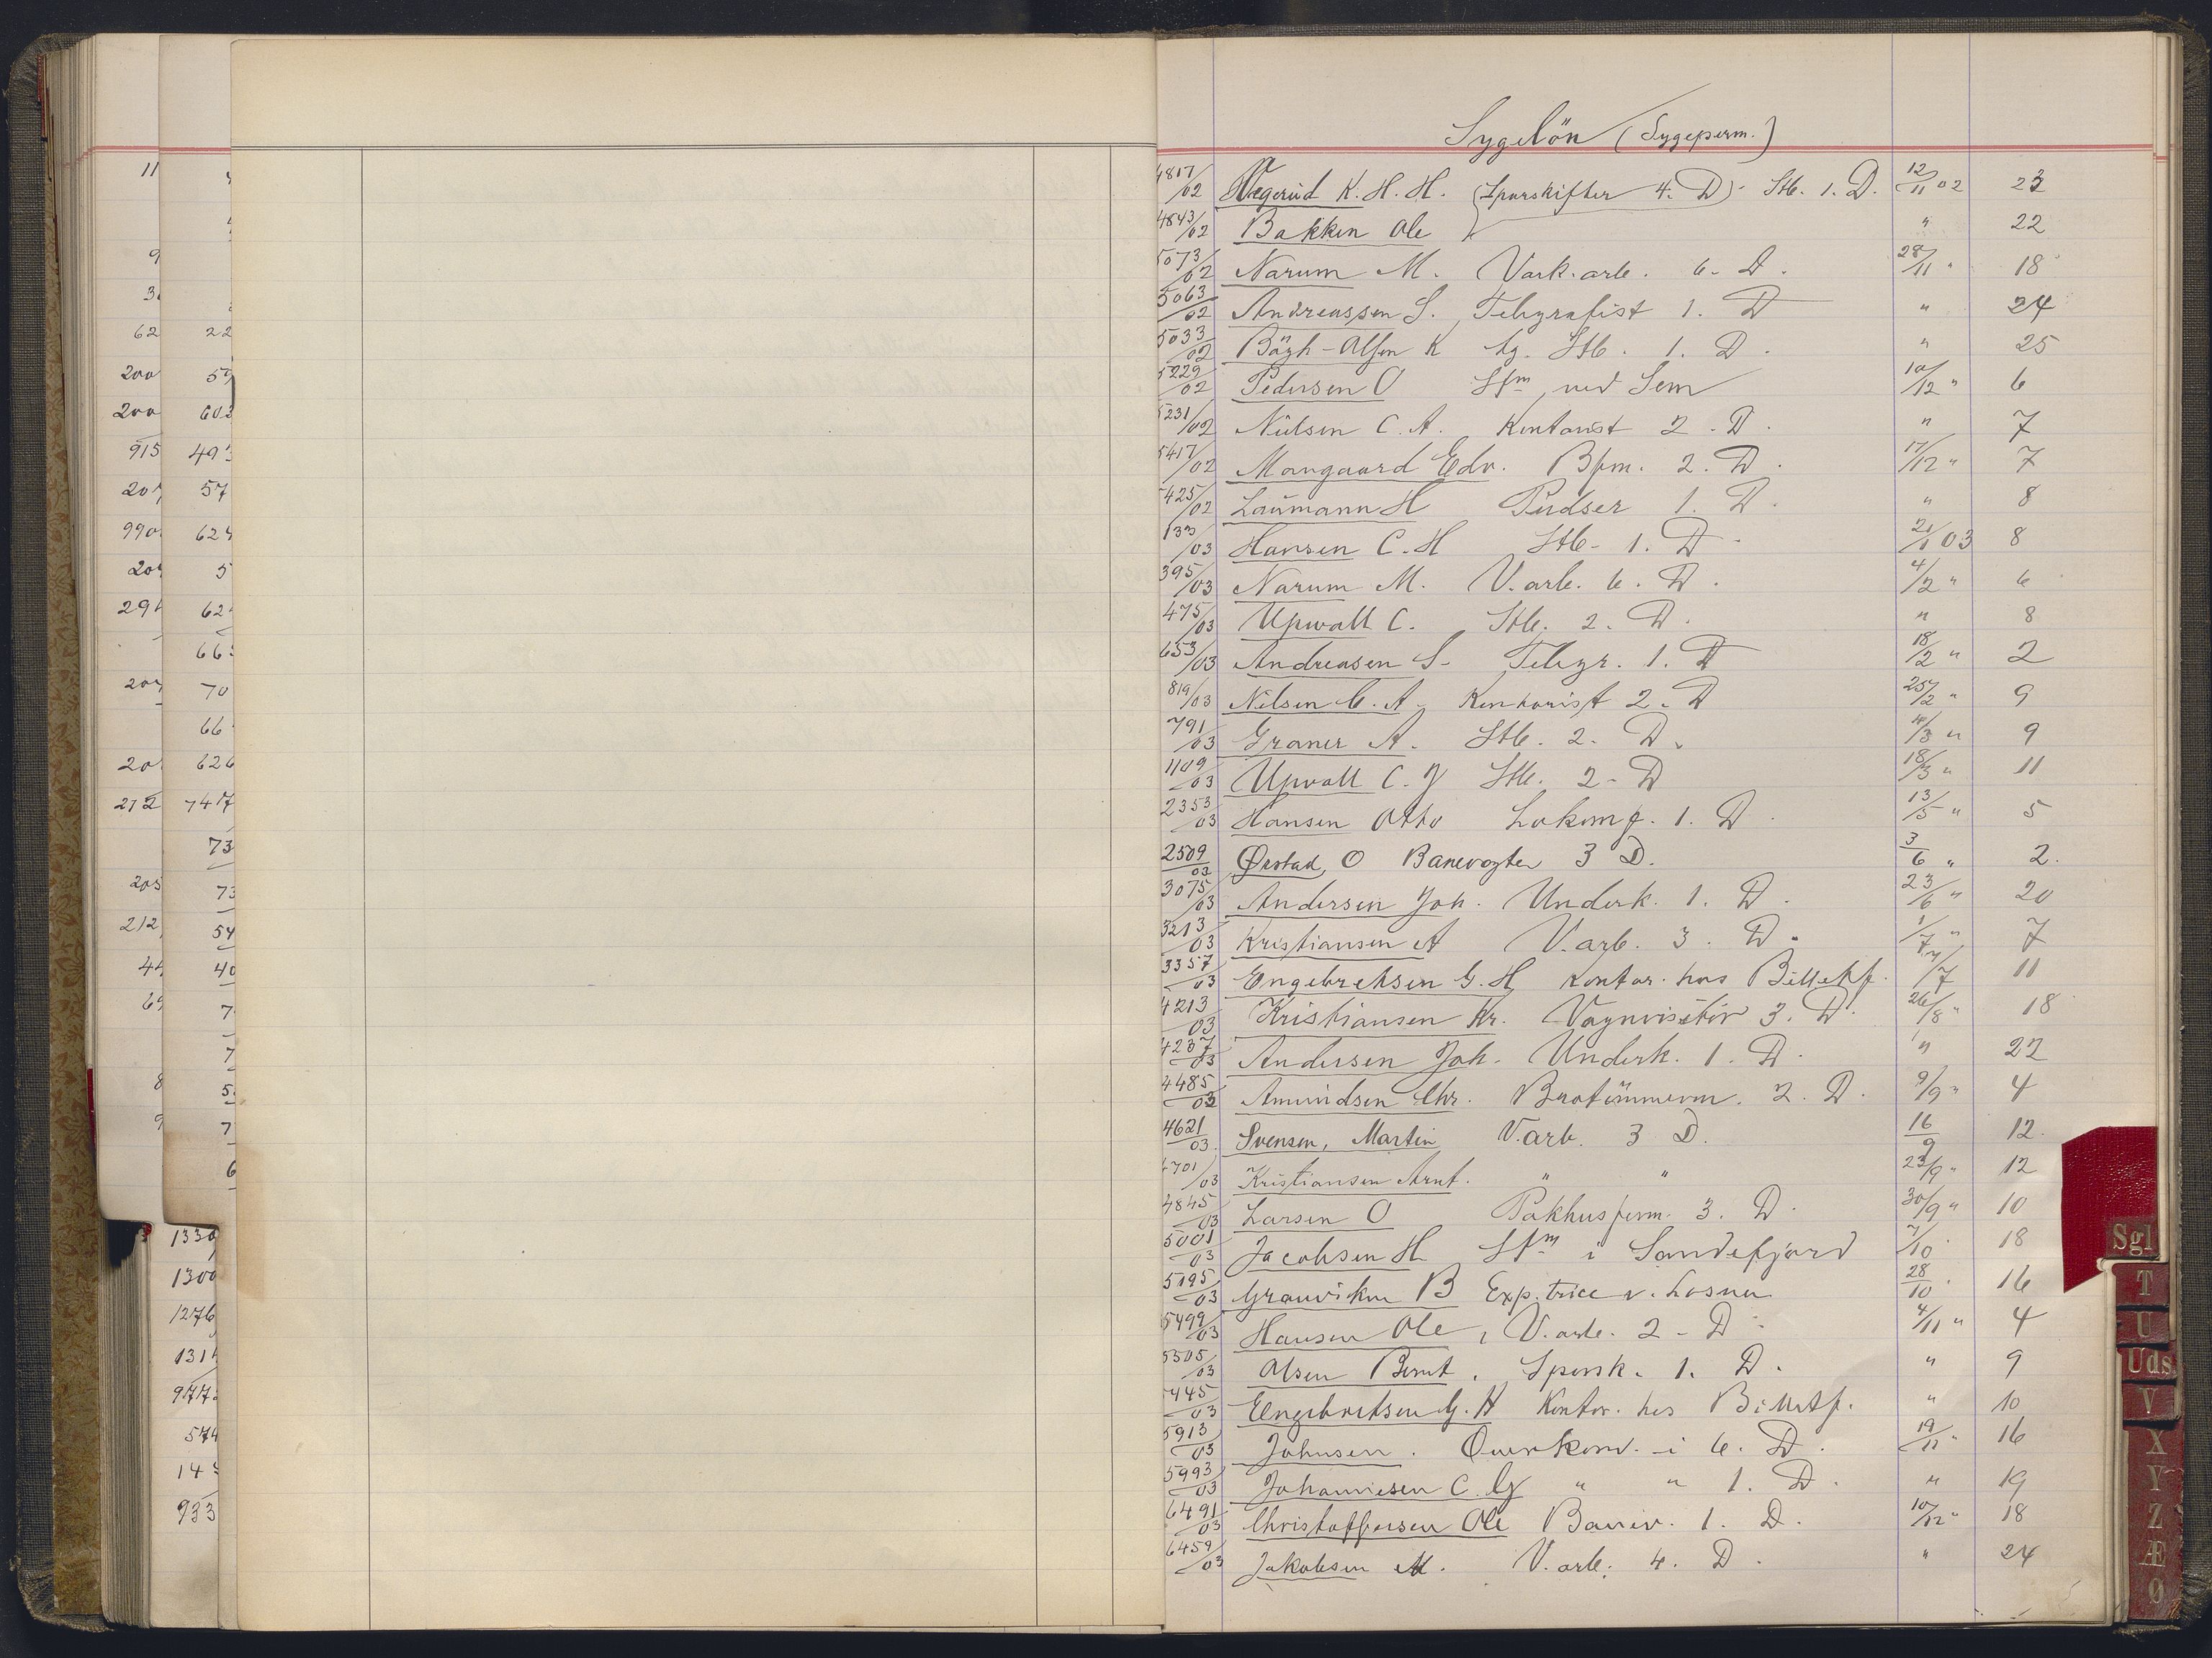 Sygelön (Sygeperm.)
4817/02 Wegerud K. H. H. (Sporskifter 4. D) Stb. 1. D. 12/11 02 23
4843/02 Bakken Ole " 22
5073/02 Narum M. Vark. arb. 6. D. 28/11 " 18
5063/02 Andreassen S. Telegrafist 1. D " 24
5033/02 Bögh-Olsen K tg. Stb. 1. D. " 25
5229/02 Pedersen O Stm ved Sem 10/12 " 6
5231/02 Nielsen C. A. Kontorist 2. D. " 7
5417/02 Mangaard Edv. Bfm. 2. D. 17/12 " 7
5425/02 Laumann H Pudser 1. D. " 8
133/03 Hansen C. H Stb. 1. D. 21/1 03 8
395/03 Narum M. V. arb. 6. D. 4/2 " 6
475/03 Upwall C. Stb. 2. D. " 8
653/03 Andreasen S. Telegr. 1. D 18/2 " 2
819/03 Nilsen C. A. Kontorist 2. D 25/2 " 9
791/03 Graner A. Stb. 2. D. 4/3 " 9
1109/03 Upwall C. J Stb. 2. D 18/3 " 11
2353/03 Hansen Otto Lokomf. 1. D. 13/5 " 5
2509/03 Ørstad, O Banevogter 3 D. 3/6 " 2.
3075/03 Andersen Joh. Underk. 1. D. 23/6 " 20
3213/03 Kristiansen A V. arb. 3. D. 1/7 " 7
3357/03 Engebretsen G. H Kontor. hos Billetf. /7 11
4213/03 Kristiansen Kr. Vognvisitör 3. D. 26/8 " 18
4237/03 Andersen Joh. Underk. 1. D. " 22
4485/03 Amundsen Chr. Brotömmerm. 2. D. 9/9 " 4
4621/03 Svensen, Martin V. arb. 3 D. 16/9 12.
4701/03 Kristiansen Arnt. " " 23/9 " 12
4845/03 Larsen O Pakhusform. 3. D. 30/9 " 10
5001/03 Jacobsen H Stm i Sandefjord 7/10 18
5195/03 Grauviken B Exp. trice v. Losna 28/10 16
5499/03 Hansen Ole, V. arb. 2. D 4/11 " 4
5505/03 Olsen Bernt, Sporsk. 1. D. " 9
5445/03 Engebretsen G. H Kontor. hos Billetf. " 10
5913/03 Johnsen. Overkond. i 6. D. 19/11 " 16
5993/03 Johannesen C. G " " 1. D. " 19
6491/03 Christoffersen Ole Banev. 1. D. 10/12 " 18
6459/03 Jakobsen M. V. arb. 4. D. " 24
Sgl
T
U
Uds
V
X
Y
Z
Æ
Ø